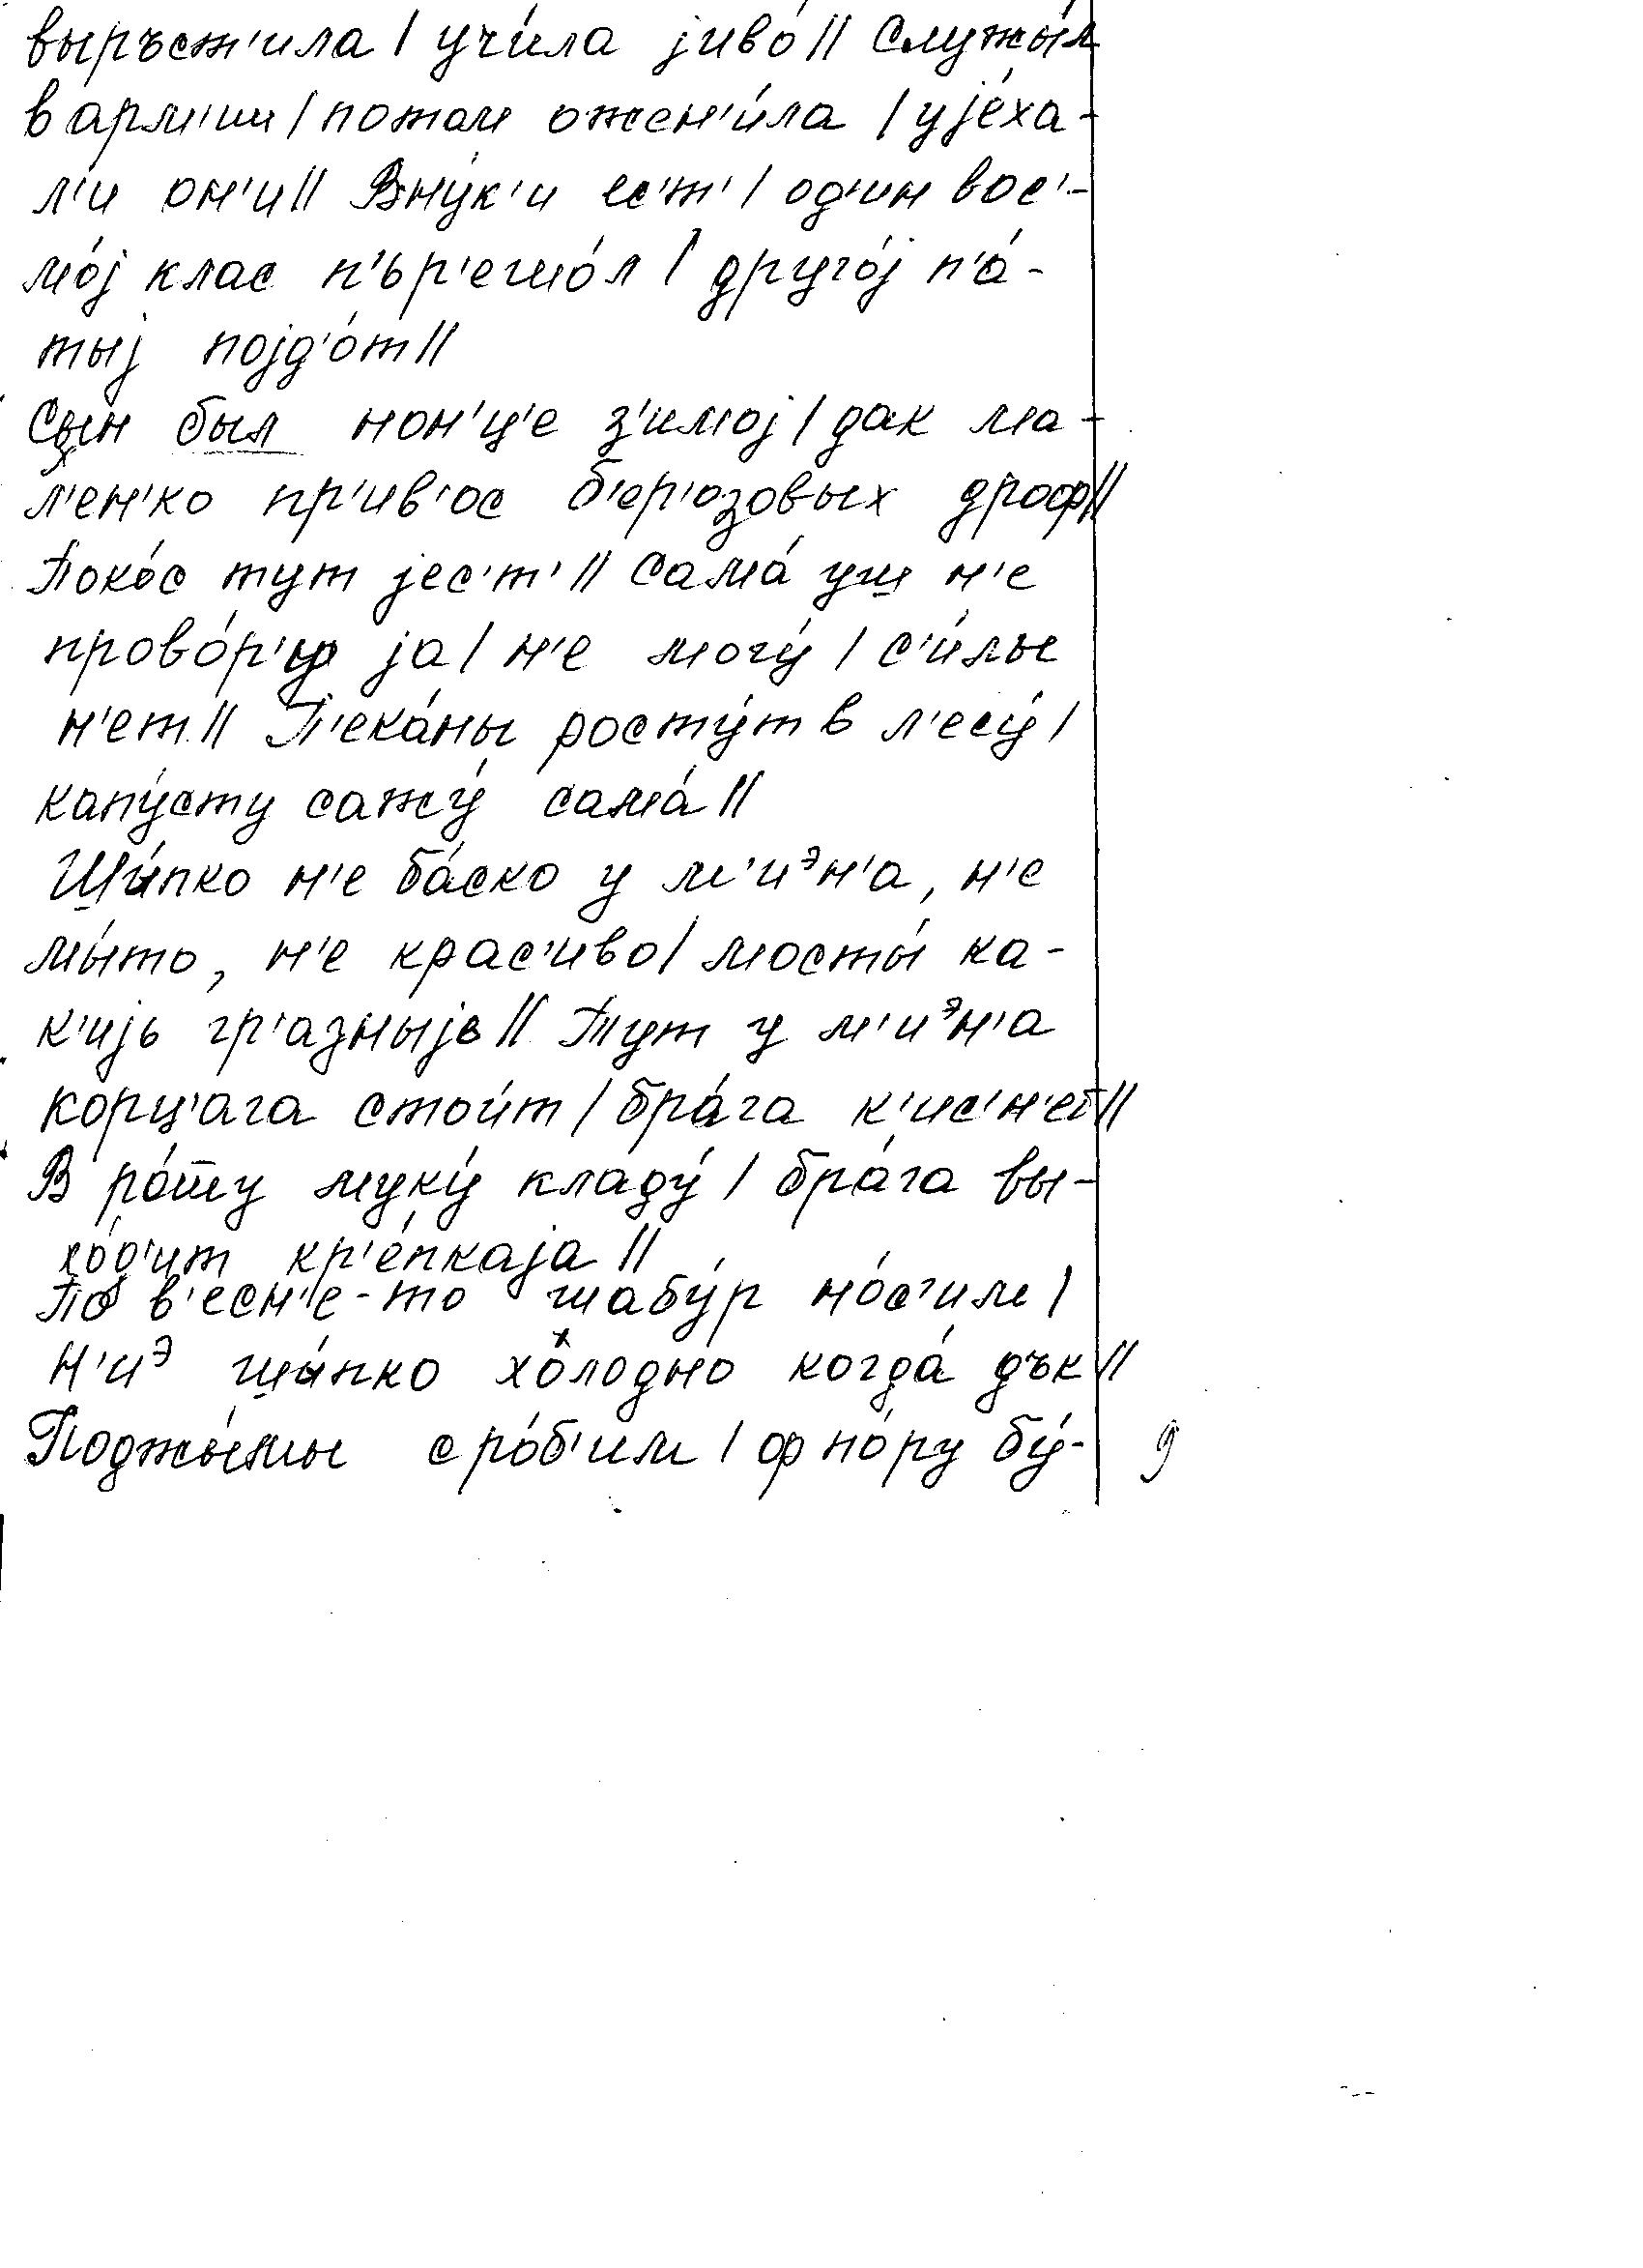 выръст'ила / учи́ла јиво́ // Служы́л
в арм'ии / потом ожен'и́ла / ује́ха-
л'и он'и // Вну́к'и ес'т' / од'ин вос'-
мо́ј клас п'ър'ешо́л / друго́ј п'а́-
тыј појд'о́т //
Сын был нон'ц'е з'имој / дак ма-
л'ен'ко пр'ив'ос б'ер'озовых дроф //
Поко́с тут јес'т' // Сама́ уш н'е
прово́р'у ја / н'е могу́ / с'и́лы
н'ет // П'ека́ны росту́т в л'есу́ /
капу́сту сажу́ сама́ //
Шы́пко н'е ба́ско у м'иᵊн'а, н'е
мы́то, н'е крас'иво / мосты́ ка-
к'ијь гр'азныјь // Тут у м'иᵊн'а
корц'ага стои́т / бра́га к'ис'н'ет //
В ро́шу муку́ кладу́ / бра́га вы-
хо́д'ит кр'е́пкаја //
По в'есн'е-то шабу́р но́с'им /
Н'иᵊ шы́пко хо́лодно когда́ дък //
Поджы́мы сро́б'им / ф по́ру бу́-
9